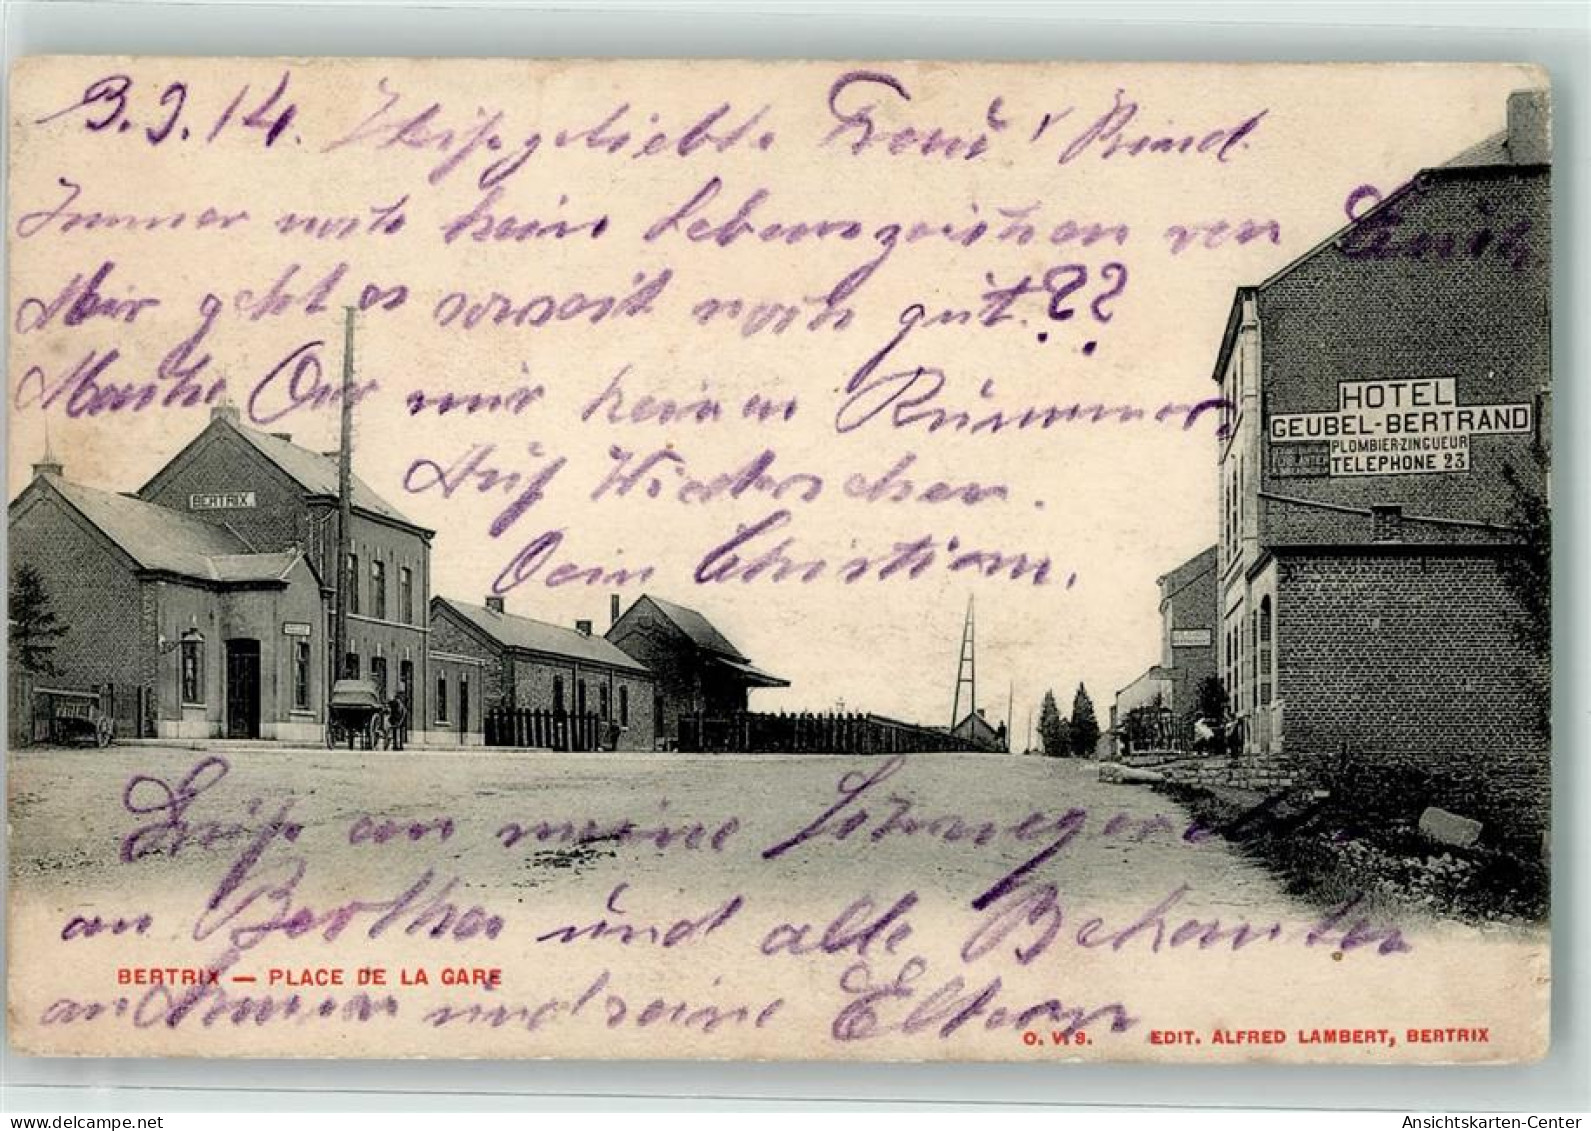 3.9.14. Heißgeliebte Frau u Kind.
Immer noch kein Lebenszeichen von Euch
Mir geht es soweit noch gut.??
Mache Dir mir keinen Kummer
Auf Wiedersehen.
Dein Christian.
HOTEL
GEUBEL-BERTRAND
PLOMBIER-ZINGUEUR
TELEPHONE 23
BERTRIX
Gruß an meine Schwiegereltern
an Bertha und alle Bekannten
an und seine Eltern
BERTRIX — PLACE DE LA GARE
O. V. S. EDIT. ALFRED LAMBERT, BERTRIX
www.delcampe.net
Ansichtskarten-Center